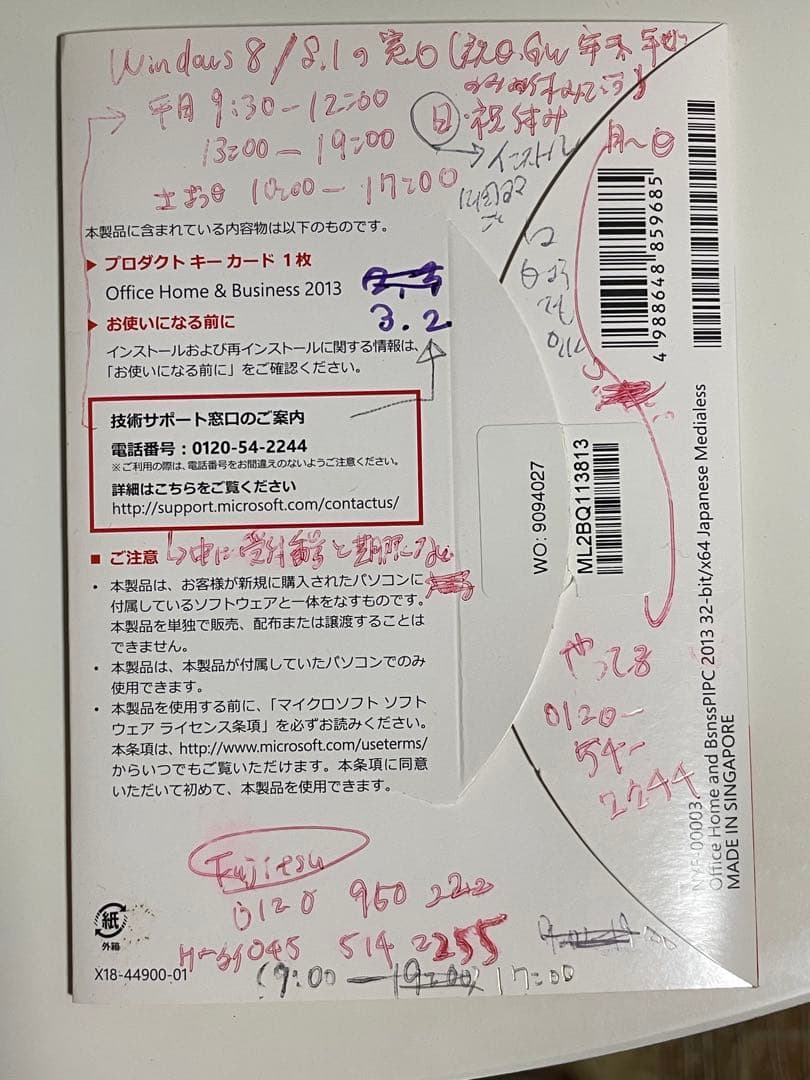 Windows 8/8.1の窓口(祝日.GW 年末年始
のみお休みです)
平日 9:30-12:00
13:00-19:00
土お日 10:00-17:00
日・祝休み
→インストール
月〜日
本製品に含まれている内容物は以下のものです。
▶ プロダクト キー カード 1枚
Office Home & Business 2013
3.2
▶ お使いになる前に
インストールおよび再インストールに関する情報は、
「お使いになる前に」をご確認ください。
技術サポート窓口のご案内
電話番号：0120-54-2244
※ご利用の際は、電話番号をお間違えのないようご注意ください。
詳細はこちらをご覧ください
http://support.microsoft.com/contactus/
■ ご注意
• 本製品は、お客様が新規に購入されたパソコンに
付属しているソフトウェアと一体をなすものです。
本製品を単独で販売、配布または譲渡することは
できません。
• 本製品は、本製品が付属していたパソコンでのみ
使用できます。
• 本製品を使用する前に、「マイクロソフト ソフト
ウェア ライセンス条項」を必ずお読みください。
本条項は、http://www.microsoft.com/useterms/
からいつでもご覧いただけます。本条項に同意
いただいて初めて、本製品を使用できます。
4 988648 859685
WO: 9094027
ML2BQ113813
Office Home and BsnssPIPC 2013 32-bit/x64 Japanese Medialess
MADE IN SINGAPORE
やってる
0120-
54-
2244
Fujitsu
0120 950 222
ケータイ045 514 2255
(9:00-19:00) 17:00
紙
外箱
X18-44900-01